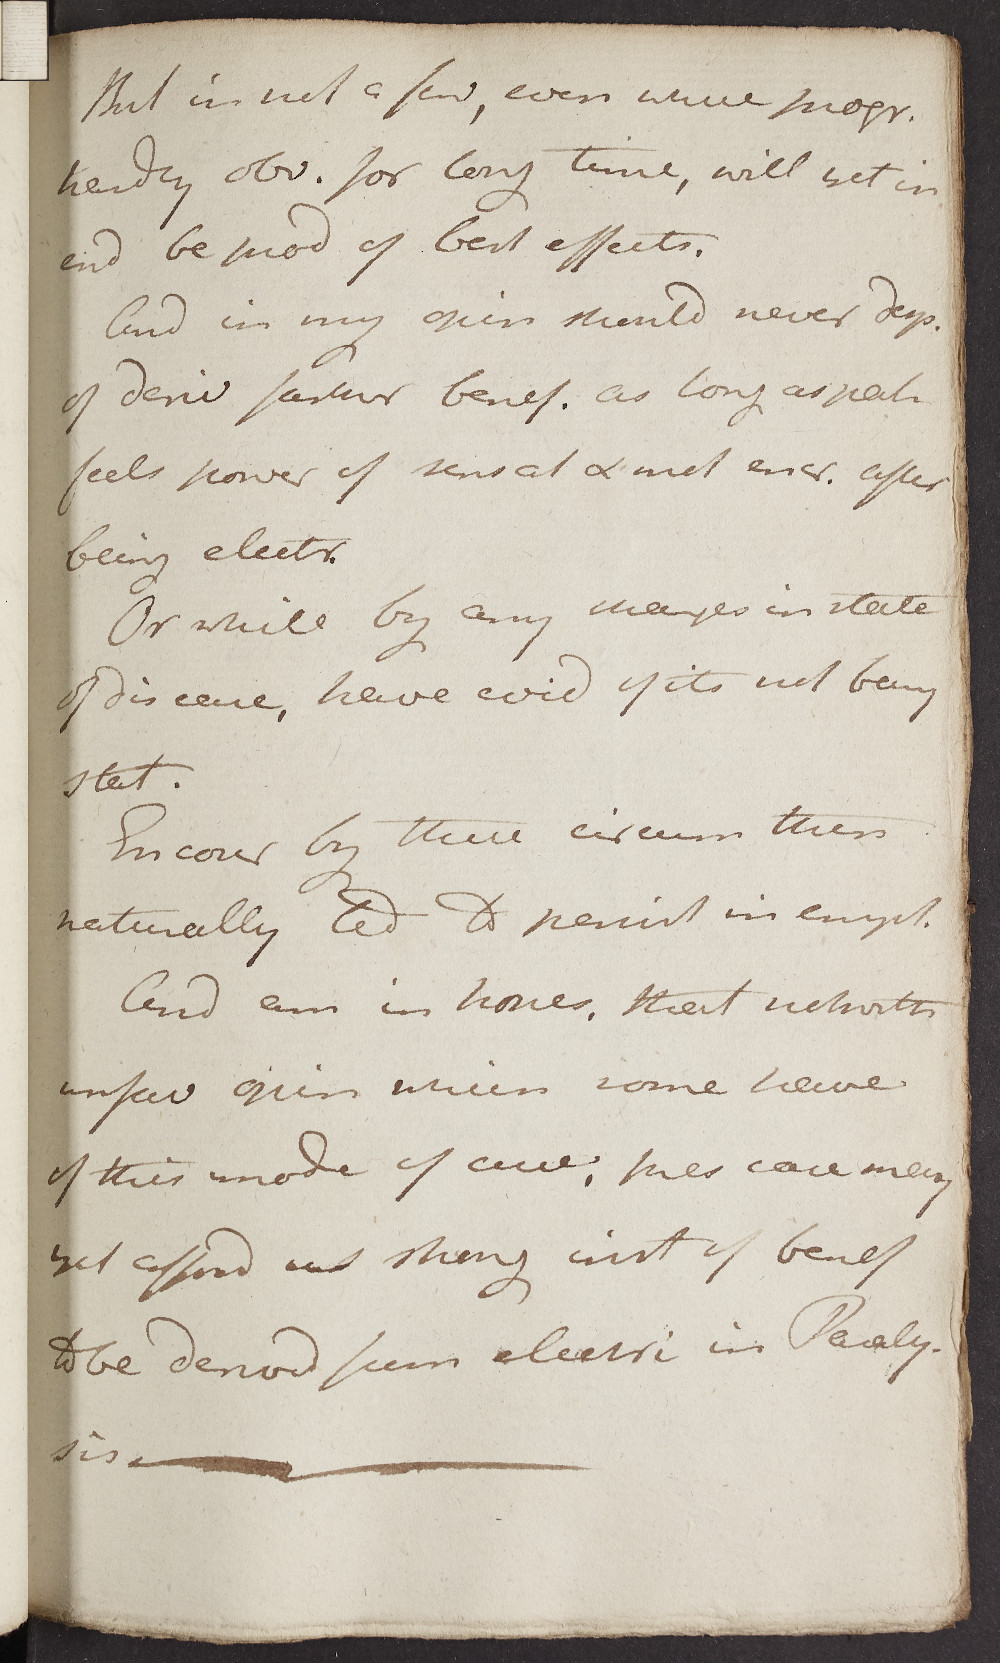 But in not a few, even where progr.
hardly obv. for long time, will yet in
end be prod of best effects.
And in my opin should never desp.
of deriv farther benef. as long as pat
feels power of sensat & mot encr. after
being electr.
Or while by any changes in state
of disease, have evid of its not being
stat.
Encour by these circum then
naturally led to persist in empl.
And am in hopes, that notwith
unfav opin which some have
of this mode of cure, pres case may
yet afford us strong inst of benef
to be derivd from electri in Paraly-
sis